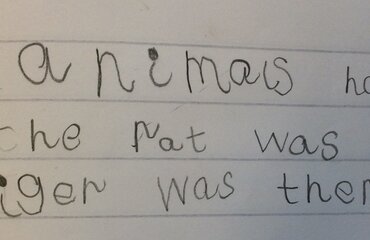 animals ho
the rat was
iger was ther